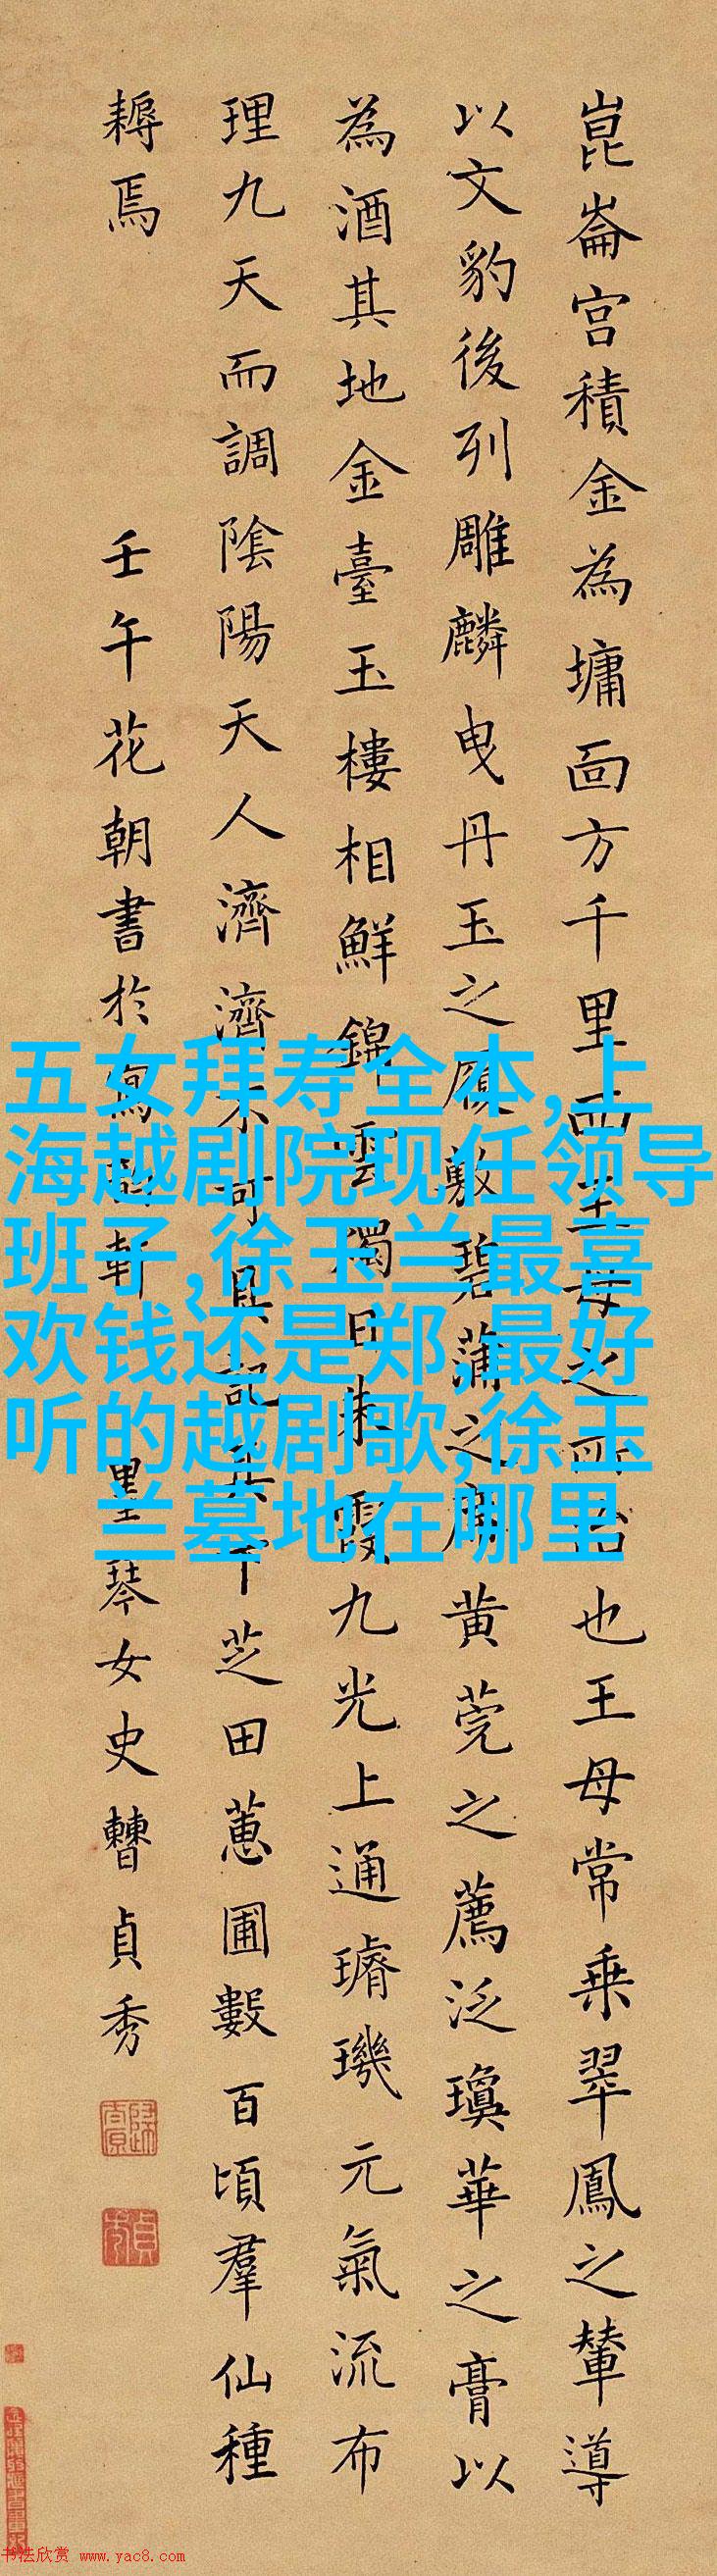 崑崙宮積金為墉面方千里西王母之所治也王母常乘翠鳳之輦導
以文豹後列雕麟曳丹玉之履敷碧蒲之席黄莞之薦泛瓊華之膏以
為酒其地金臺玉樓相鮮錦雲燭日朱霞九光上通璿璣元氣流布
理九天而調陰陽天人濟濟不可具記其下芝田蕙圃數百頃羣仙種
耨焉
壬午花朝書於寫韻軒 墨琴女史曹貞秀
五女拜寿全本,上
海越剧院现任领导
班子,徐玉兰最喜
欢钱还是郑,最好
听的越剧歌,徐玉
兰墓地在哪里
书法欣赏 www.yac8.com